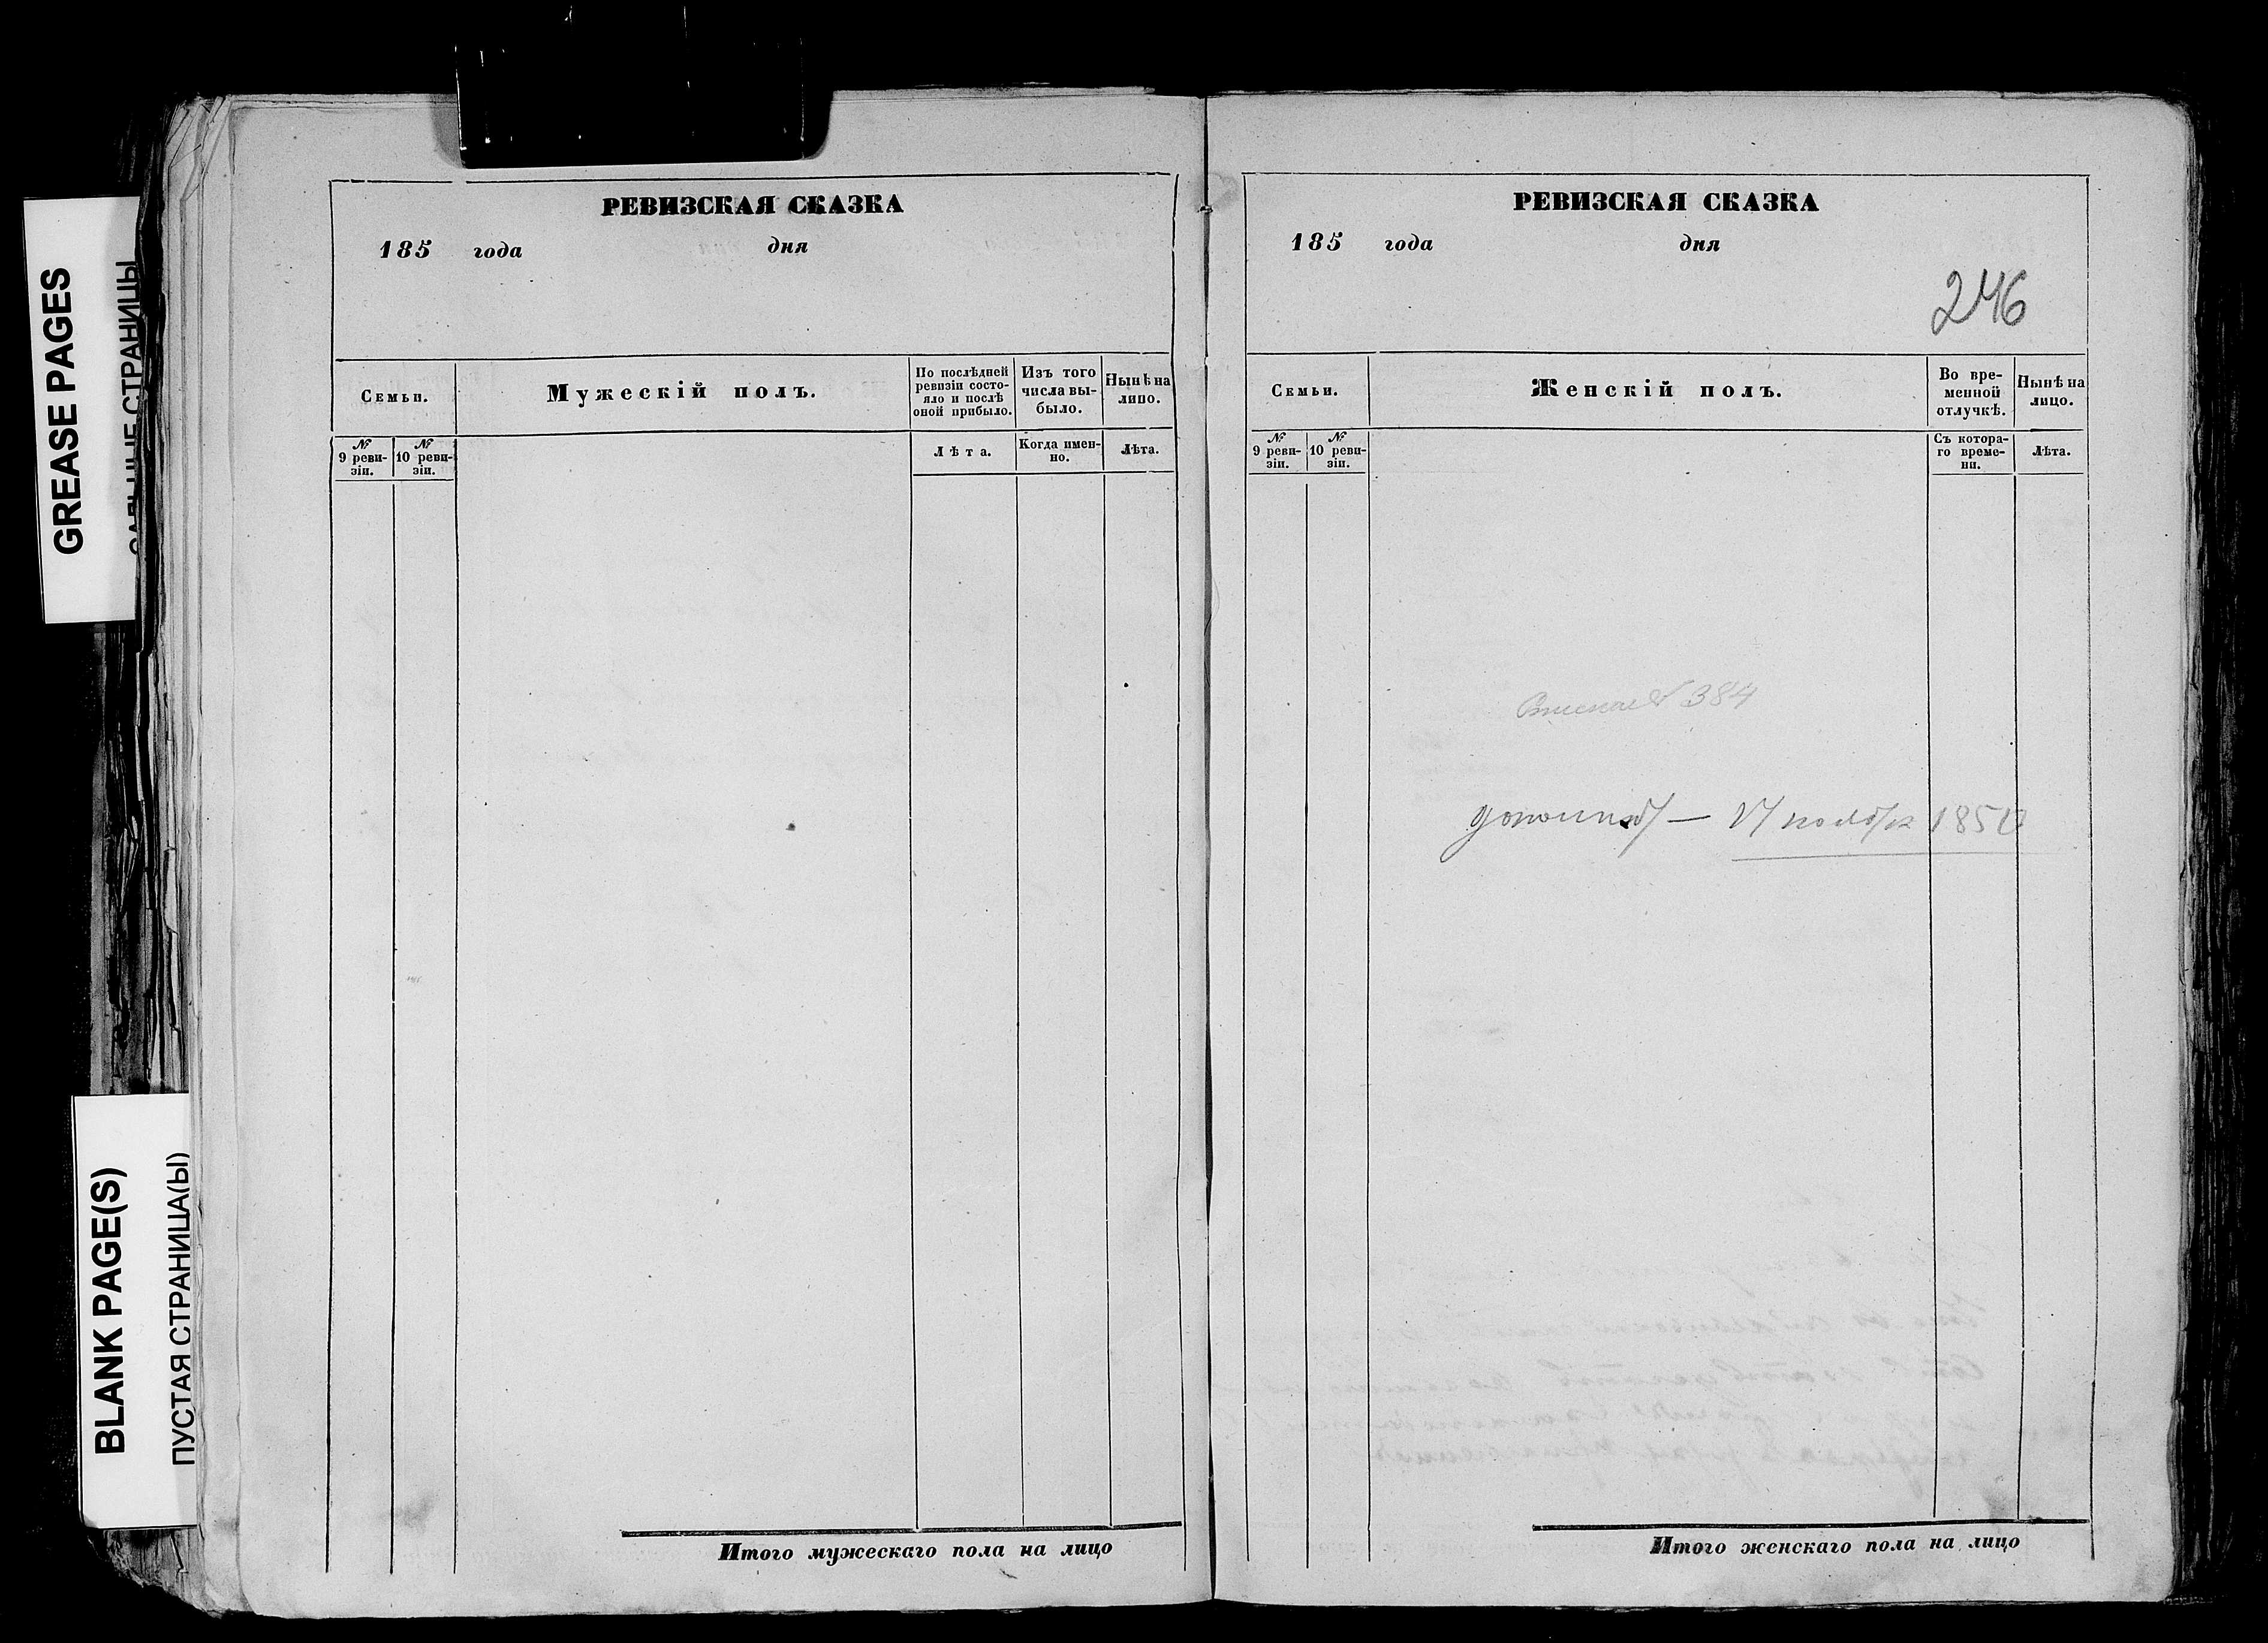 GREASE PAGES
САЛЬНЫЕ СТРАНИЦЫ
BLANK PAGE(S)
ПУСТАЯ СТРАНИЦА(Ы)
РЕВИЗСКАЯ СКАЗКА
185 года дня
Семьи.
Мужескій полъ.
По послѣдней
ревизіи состо-
яло и послѣ
оной прибыло.
Изъ того
числа вы-
было.
Нынѣ на
лицо.
№
9 реви-
зіи.
№
10 реви-
зіи.
Лѣта.
Когда имен-
но.
Лѣта.
Итого мужескаго пола на лицо
РЕВИЗСКАЯ СКАЗКА
185 года дня
246
Семьи.
Женскій полъ.
Во вре-
менной
отлучкѣ.
Нынѣ на
лицо.
№
9 реви-
зіи.
№
10 реви-
зіи.
Съ котора-
го време-
ни.
Лѣта.
384
ноября 1850
Итого женскаго пола на лицо